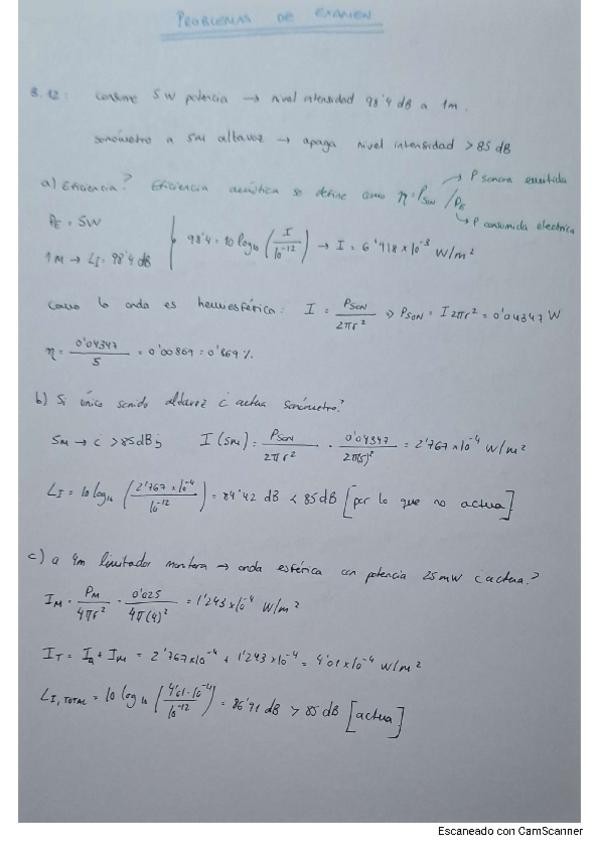 PROBLEMAS DE EXAMEN
3.12: consume 5W potencia → nivel intensidad 98'4 dB a 1m.
sonómetro a 5m altavoz → apaga nivel intensidad > 85 dB
a) Eficiencia? Eficiencia acústica se define como η = PSON / PE → P sonora emitida → P consumida electrica
PE = 5W
1M → LI = 98'4 dB
98'4 = 10 log10 (I / 10^-12) → I = 6'918 x 10^-3 W/m²
Como la onda es hemiesférica: I = PSON / 2πr² ⇒ PSON = I 2πr² = 0'04347 W
η = 0'04347 / 5 = 0'00869 = 0'869 %.
b) Si único sonido altavoz ¿actua sonómetro?
5M → ¿ > 85 dB? I (5M) = PSON / 2πr² = 0'04347 / 2π(5)² = 2'767 x 10^-4 W/m²
LI = 10 log10 (2'767 x 10^-4 / 10^-12) = 84'42 dB < 85 dB [por lo que no actua]
c) a 4m limitador → onda esférica con potencia 25 mW ¿actua?
IM = PM / 4πr² = 0'025 / 4π(4)² = 1'243 x 10^-4 W/m²
IT = Ia + IM = 2'767x10^-4 + 1'243 x 10^-4 = 4'01 x 10^-4 W/m²
LI, TOTAL = 10 log10 (4'01·10^-4 / 10^-12) = 86'91 dB > 85 dB [actua]
Escaneado con CamScanner